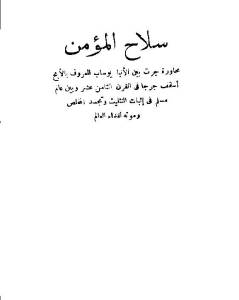 سلاح المؤمن
محاورة جرت بين الأنبا يوساب المعروف بالأبح
أسقف جرجا فى القرن الثامن عشر وبين عالم
مسلم فى إثبات التثليث وتجسد المخلص
وموته لفداء العالم